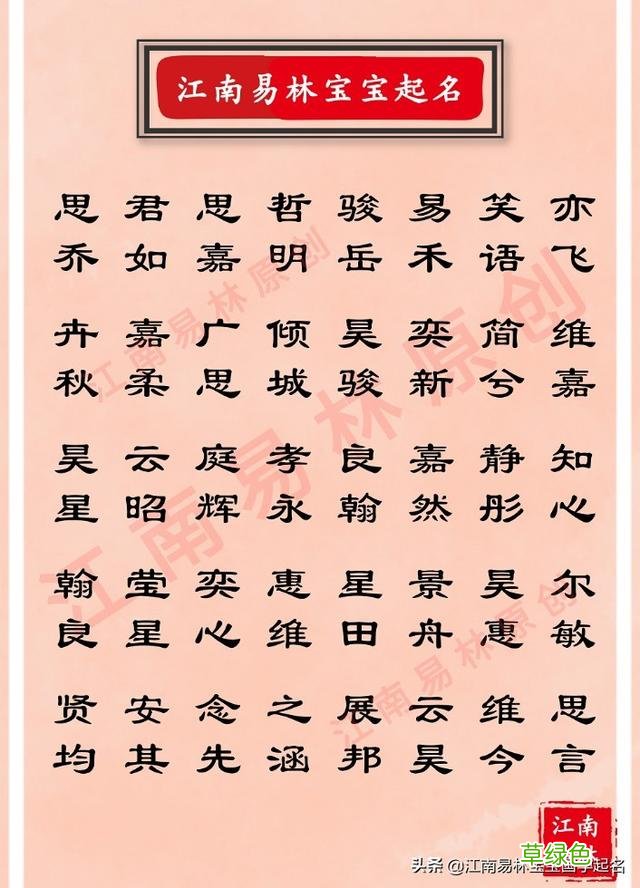 江南易林宝宝起名
思 君 思 哲 骏 易 笑 亦
乔 如 嘉 明 岳 禾 语 飞
卉 嘉 广 倾 昊 奕 简 维
秋 柔 思 城 骏 新 兮 嘉
昊 云 庭 孝 良 嘉 静 知
星 昭 辉 永 翰 然 彤 心
翰 莹 奕 惠 星 景 昊 尔
良 星 心 维 田 舟 惠 敏
贤 安 念 之 展 云 维 思
均 其 先 涵 邦 昊 今 言
江南易林原创
江南易林原创
江南易林原创
江南
草绿色
头条 @江南易林宝宝国学起名